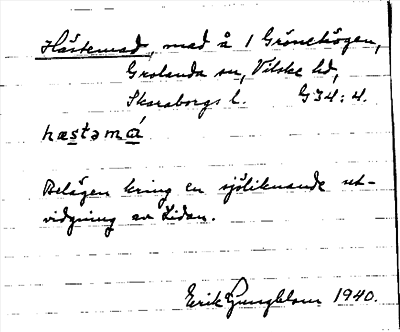 Hästemad, mad å 1 Grönehögen,
Grolanda sn, Vilske hd,
Skaraborgs l. G34:4.
hæstəmá
Belägen kring en sjöliknande ut-
vidgning av Lidan.
Erik Ljungblom 1940.